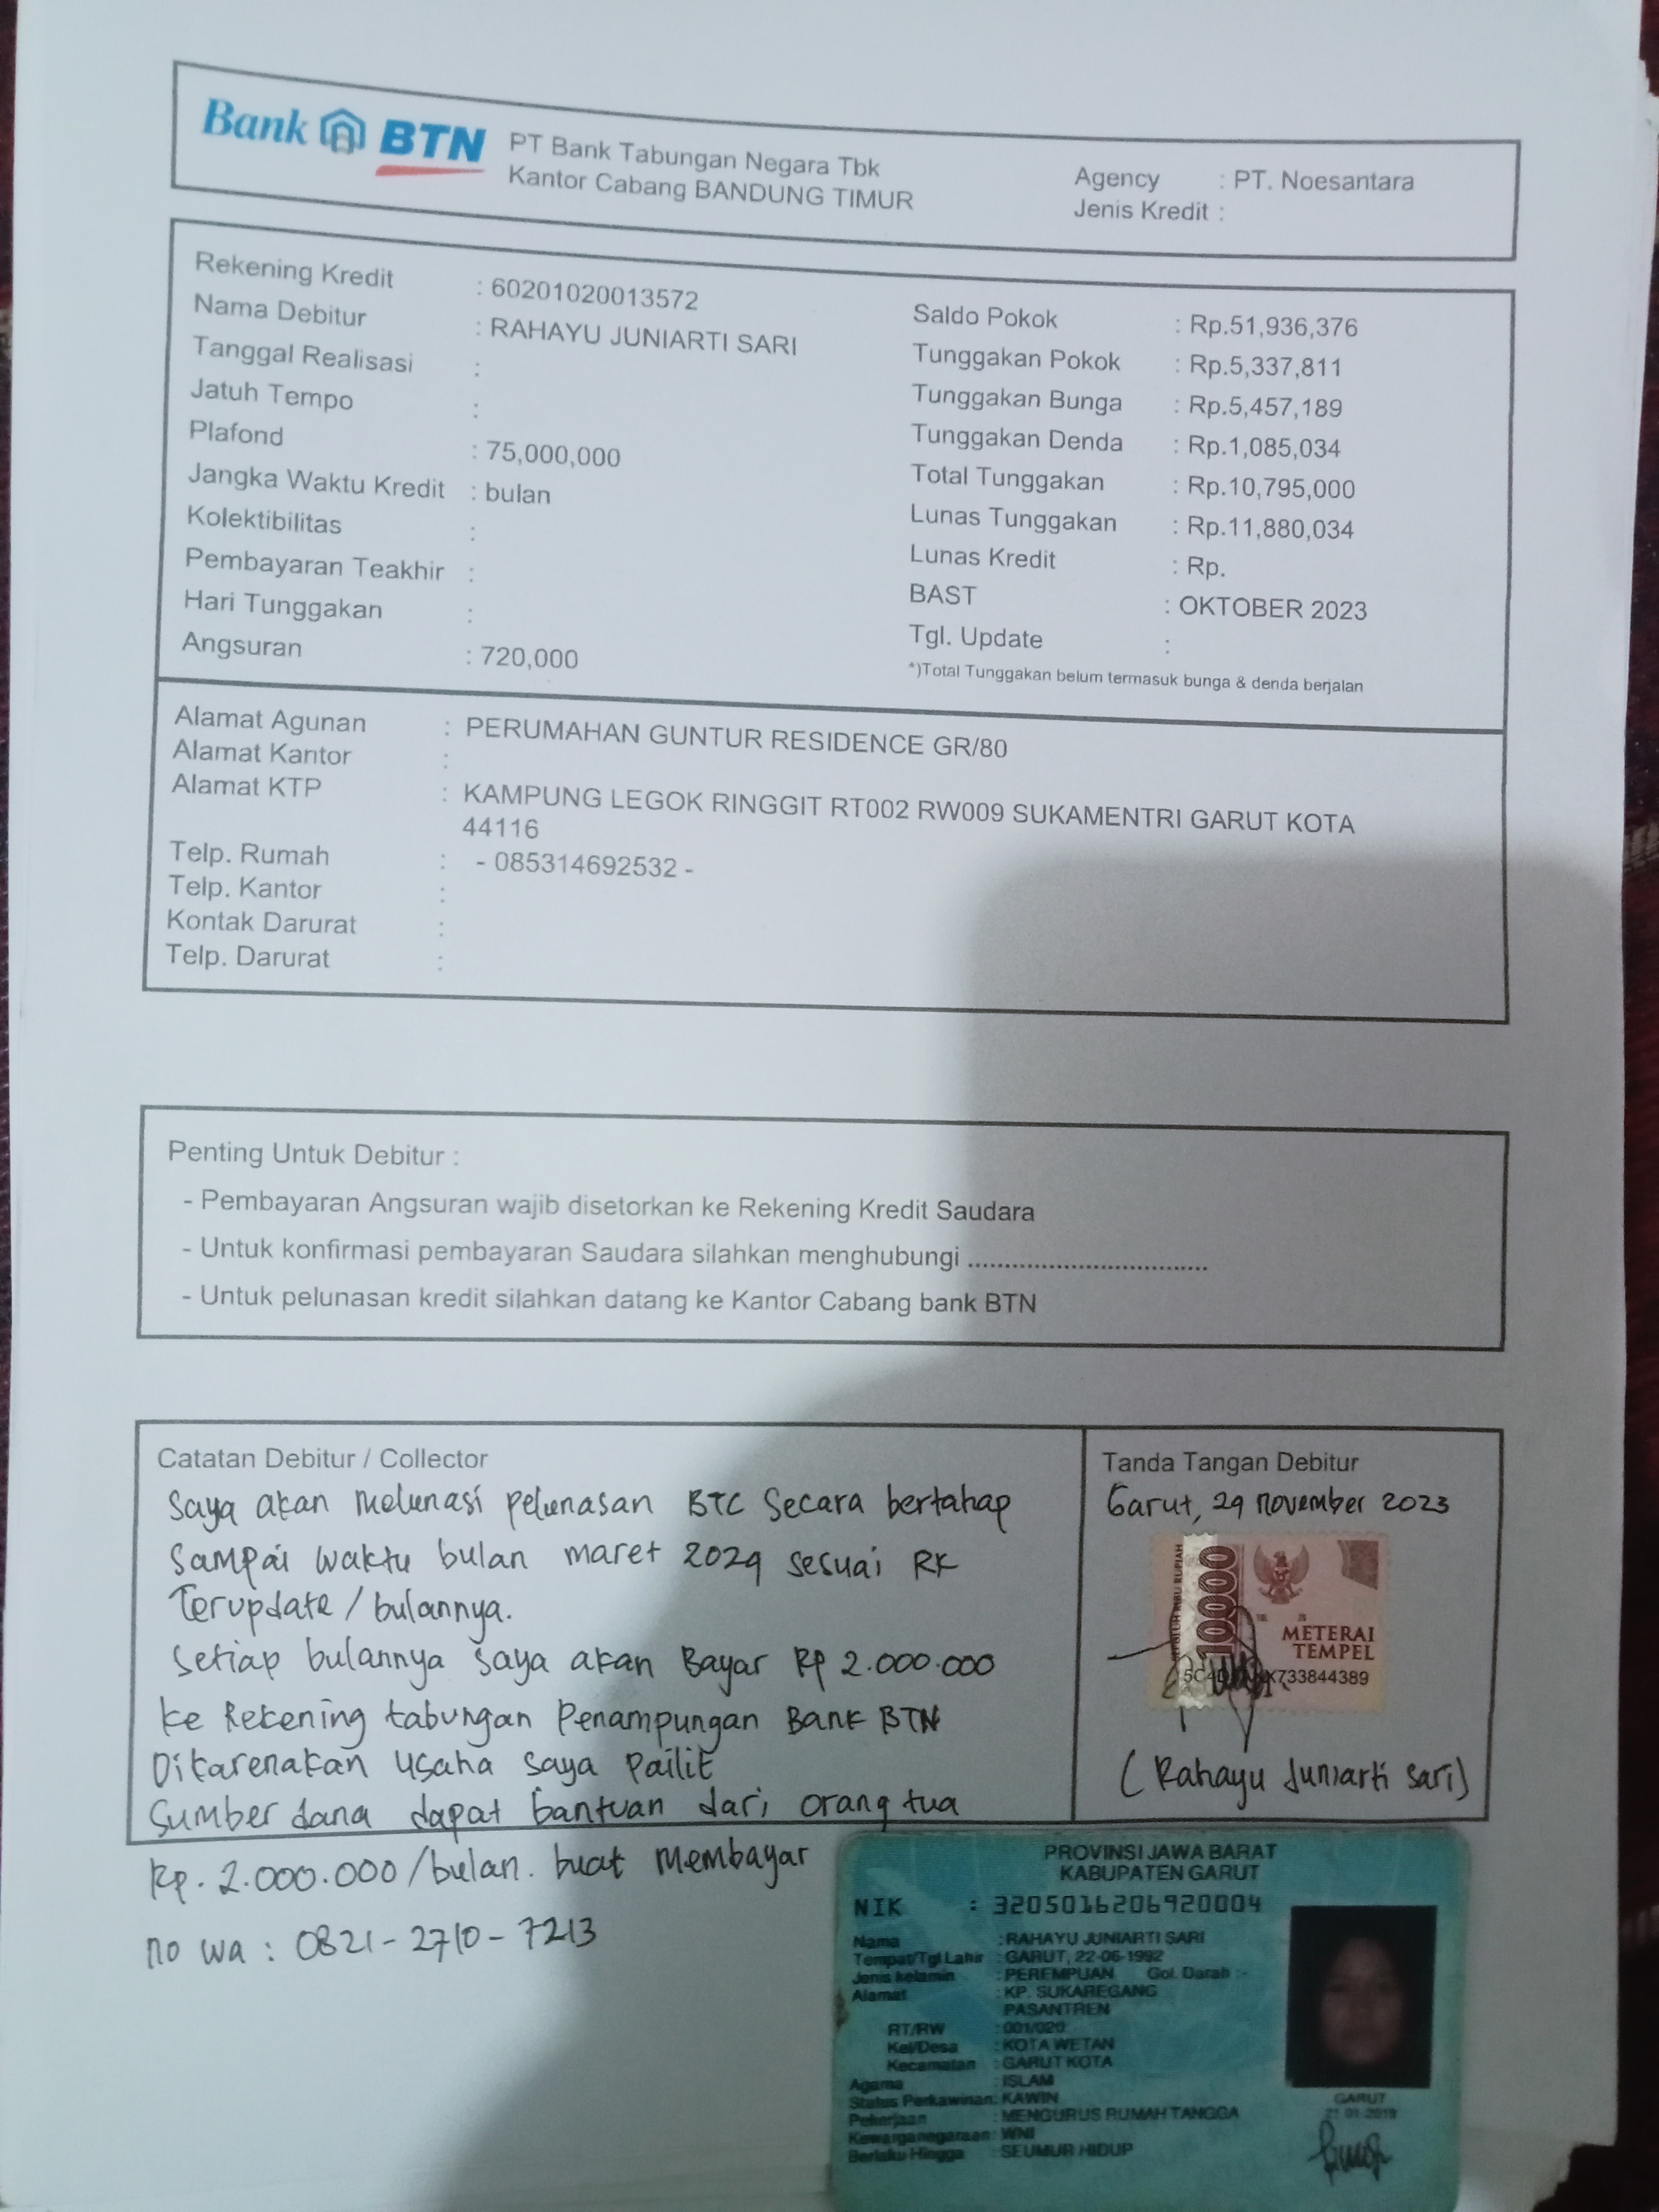 Bank BTN
PT Bank Tabungan Negara Tbk
Kantor Cabang BANDUNG TIMUR
Agency : PT. Noesantara
Jenis Kredit :
Rekening Kredit : 60201020013572
Nama Debitur : RAHAYU JUNIARTI SARI
Tanggal Realisasi :
Jatuh Tempo :
Plafond : 75,000,000
Jangka Waktu Kredit : bulan
Kolektibilitas :
Pembayaran Teakhir :
Hari Tunggakan :
Angsuran : 720,000
Saldo Pokok : Rp.51,936,376
Tunggakan Pokok : Rp.5,337,811
Tunggakan Bunga : Rp.5,457,189
Tunggakan Denda : Rp.1,085,034
Total Tunggakan : Rp.10,795,000
Lunas Tunggakan : Rp.11,880,034
Lunas Kredit : Rp.
BAST : OKTOBER 2023
Tgl. Update :
*)Total Tunggakan belum termasuk bunga & denda berjalan
Alamat Agunan : PERUMAHAN GUNTUR RESIDENCE GR/80
Alamat Kantor :
Alamat KTP : KAMPUNG LEGOK RINGGIT RT002 RW009 SUKAMENTRI GARUT KOTA
44116
Telp. Rumah : - 085314692532 -
Telp. Kantor :
Kontak Darurat :
Telp. Darurat :
Penting Untuk Debitur :
- Pembayaran Angsuran wajib disetorkan ke Rekening Kredit Saudara
- Untuk konfirmasi pembayaran Saudara silahkan menghubungi ................................
- Untuk pelunasan kredit silahkan datang ke Kantor Cabang bank BTN
Catatan Debitur / Collector
Saya akan melunasi pelunasan BTC Secara bertahap
Sampai waktu bulan maret 2024 sesuai RK
Terupdate / bulannya.
Setiap bulannya saya akan Bayar Rp 2.000.000
ke Rekening tabungan Penampungan Bank BTN
Dikarenakan usaha saya Pailit
Sumber dana dapat bantuan dari orang tua
Rp. 2.000.000 / bulan. buat membayar
no wa : 0821-2710-7213
Tanda Tangan Debitur
Garut, 29 november 2023
SEPULUH RIBU RUPIAH
10000
METERAI
TEMPEL
X733844389
(Rahayu Juniarti Sari)
PROVINSI JAWA BARAT
KABUPATEN GARUT
NIK : 3205016206920004
Nama : RAHAYU JUNIARTI SARI
Tempat/Tgl Lahir : GARUT, 22-06-1992
Jenis kelamin : PEREMPUAN Gol. Darah :-
Alamat : KP. SUKAREGANG
PASANTREN
RT/RW : 001/020
Kel/Desa : KOTA WETAN
Kecamatan : GARUT KOTA
Agama : ISLAM
Status Perkawinan: KAWIN
Pekerjaan : MENGURUS RUMAH TANGGA
Kewarganegaraan: WNI
Berlaku Hingga : SEUMUR HIDUP
GARUT